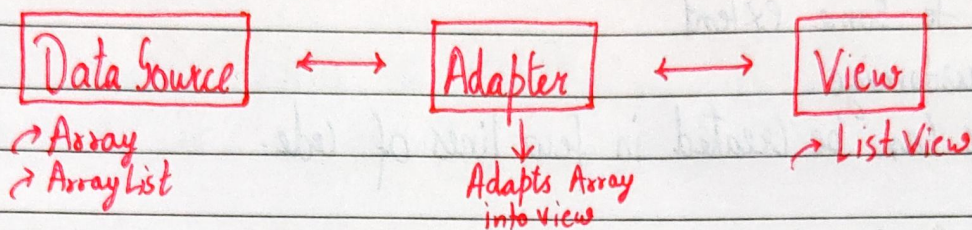 Data Source ↔ Adapter ↔ View
→ Array
→ ArrayList
↓
Adapts Array
into view
→ List View